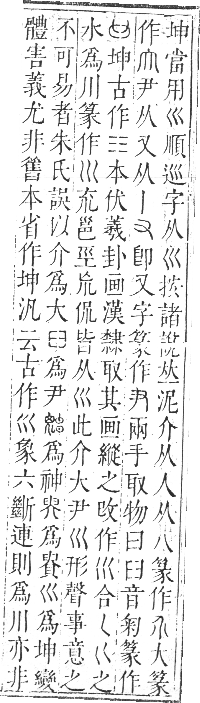 坤當用巛順巡字从巛挨諸說从一泥介从人从八篆作大篆
作尹从又从丨卽又字篆作兩手取物曰臼音匊篆作
坤古作本伏羲卦画漢隸取其画縱之改作巛合く巜之
水爲川篆作巛㐬邕巠巟侃皆从巛此介大尹巛形聲事意之
不可易者朱氏誤以介爲大爲尹爲神爲貴巛爲坤變
體害義尤非舊本省作坤汎云古作巛象六斷連則爲川亦非